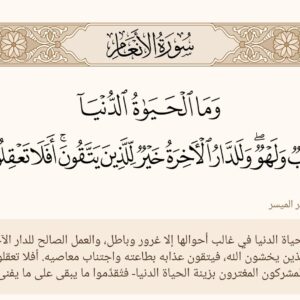 سُورَةُ الْأَنْعَامِ
وَمَا الْحَيَوٰةُ الدُّنْيَآ
وَلَهْوٌ ۖ وَلَلدَّارُ الْآخِرَةُ خَيْرٌ لِّلَّذِينَ يَتَّقُونَ ۗ أَفَلَا تَعْقِلُو
الميسر
حياة الدنيا في غالب أحوالها إلا غرور وباطل، والعمل الصالح للدار الآ
ذين يخشون الله، فيتقون عذابه بطاعته واجتناب معاصيه. أفلا تعقلو
مشركون المغترون بزينة الحياة الدنيا- فتُقدِّموا ما يبقى على ما يفنى